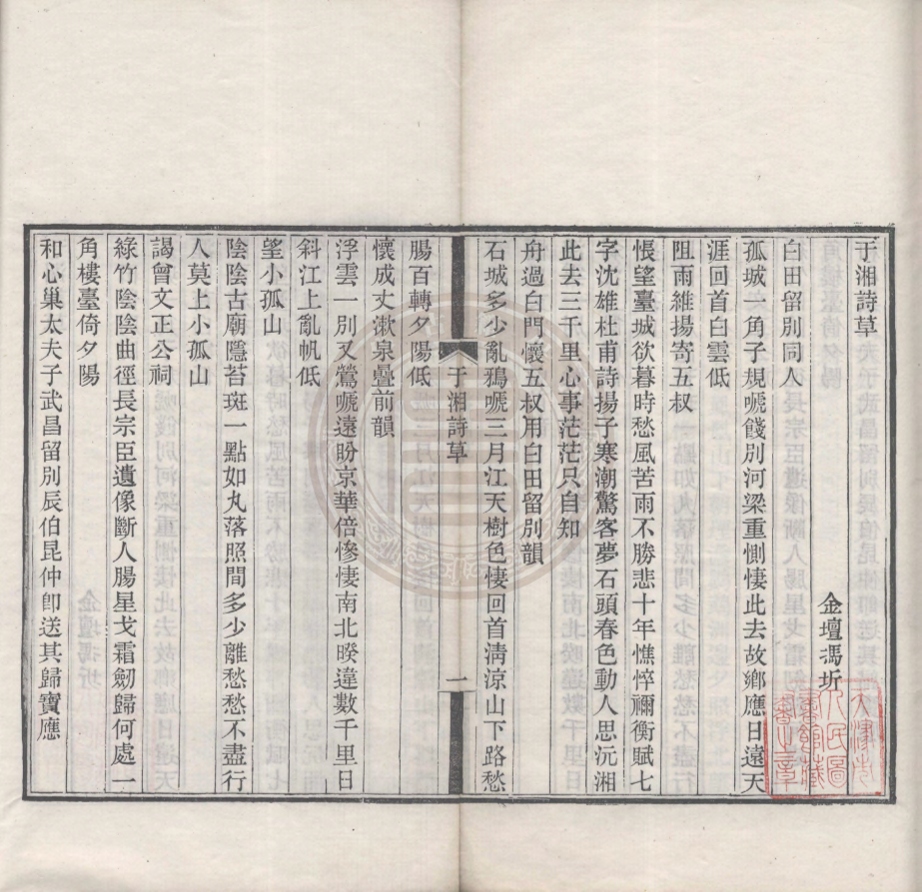 于湘詩草
金壇馮圻
白田留別同人
孤城一角子規嗁餞別河梁重惻悽此去故鄉應日遠天
涯回首白雲低
阻雨維揚寄五叔
悵望臺城欲暮時愁風苦雨不勝悲十年憔悴禰衡賦七
字沈雄杜甫詩揚子寒潮驚客夢石頭春色動人思沅湘
此去三千里心事茫茫只自知
舟過白門懷五叔用白田留別韻
石城多少亂鴉嗁三月江天樹色悽回首淸涼山下路愁
于湘詩草
一
腸百轉夕陽低
懷成丈漱泉疊前韻
浮雲一別又鶯嗁遠盼京華倍慘悽南北暌違數千里日
斜江上亂帆低
望小孤山
陰陰古廟隱苔斑一點如丸落照間多少離愁愁不盡行
人莫上小孤山
謁曾文正公祠
綠竹陰陰曲徑長宗臣遺像斷人腸星戈霜劒歸何處一
角樓臺倚夕陽
和心巢太夫子武昌留別辰伯昆仲卽送其歸寶應
天津市
人民圖
書館藏
書之章